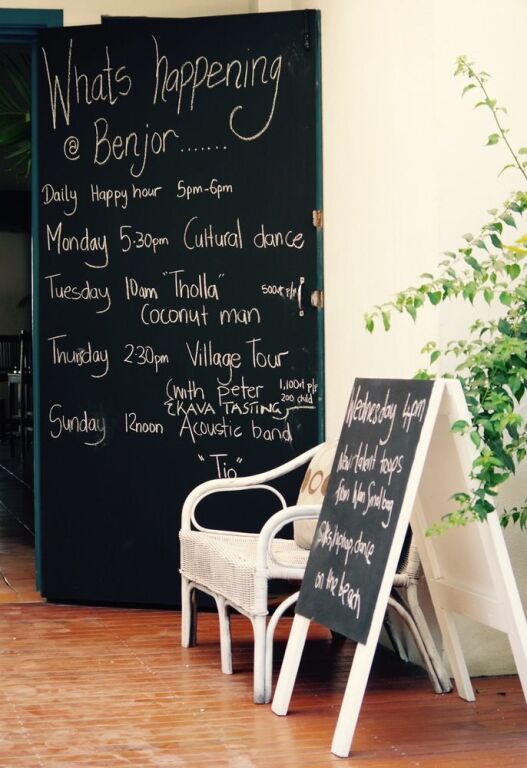 Whats happening
@ Benjor.......
Daily Happy hour 5pm-6pm
Monday 5:30pm Cultural dance
Tuesday 10am "Tholla"
Coconut man
Thursday 2:30pm Village Tour
(with peter 1,100vt p/p
200 child
& KAVA TASTING
Sunday 12noon Acoustic band
"Tio"
Wednesday 4pm
talent
from
dance
on the beach